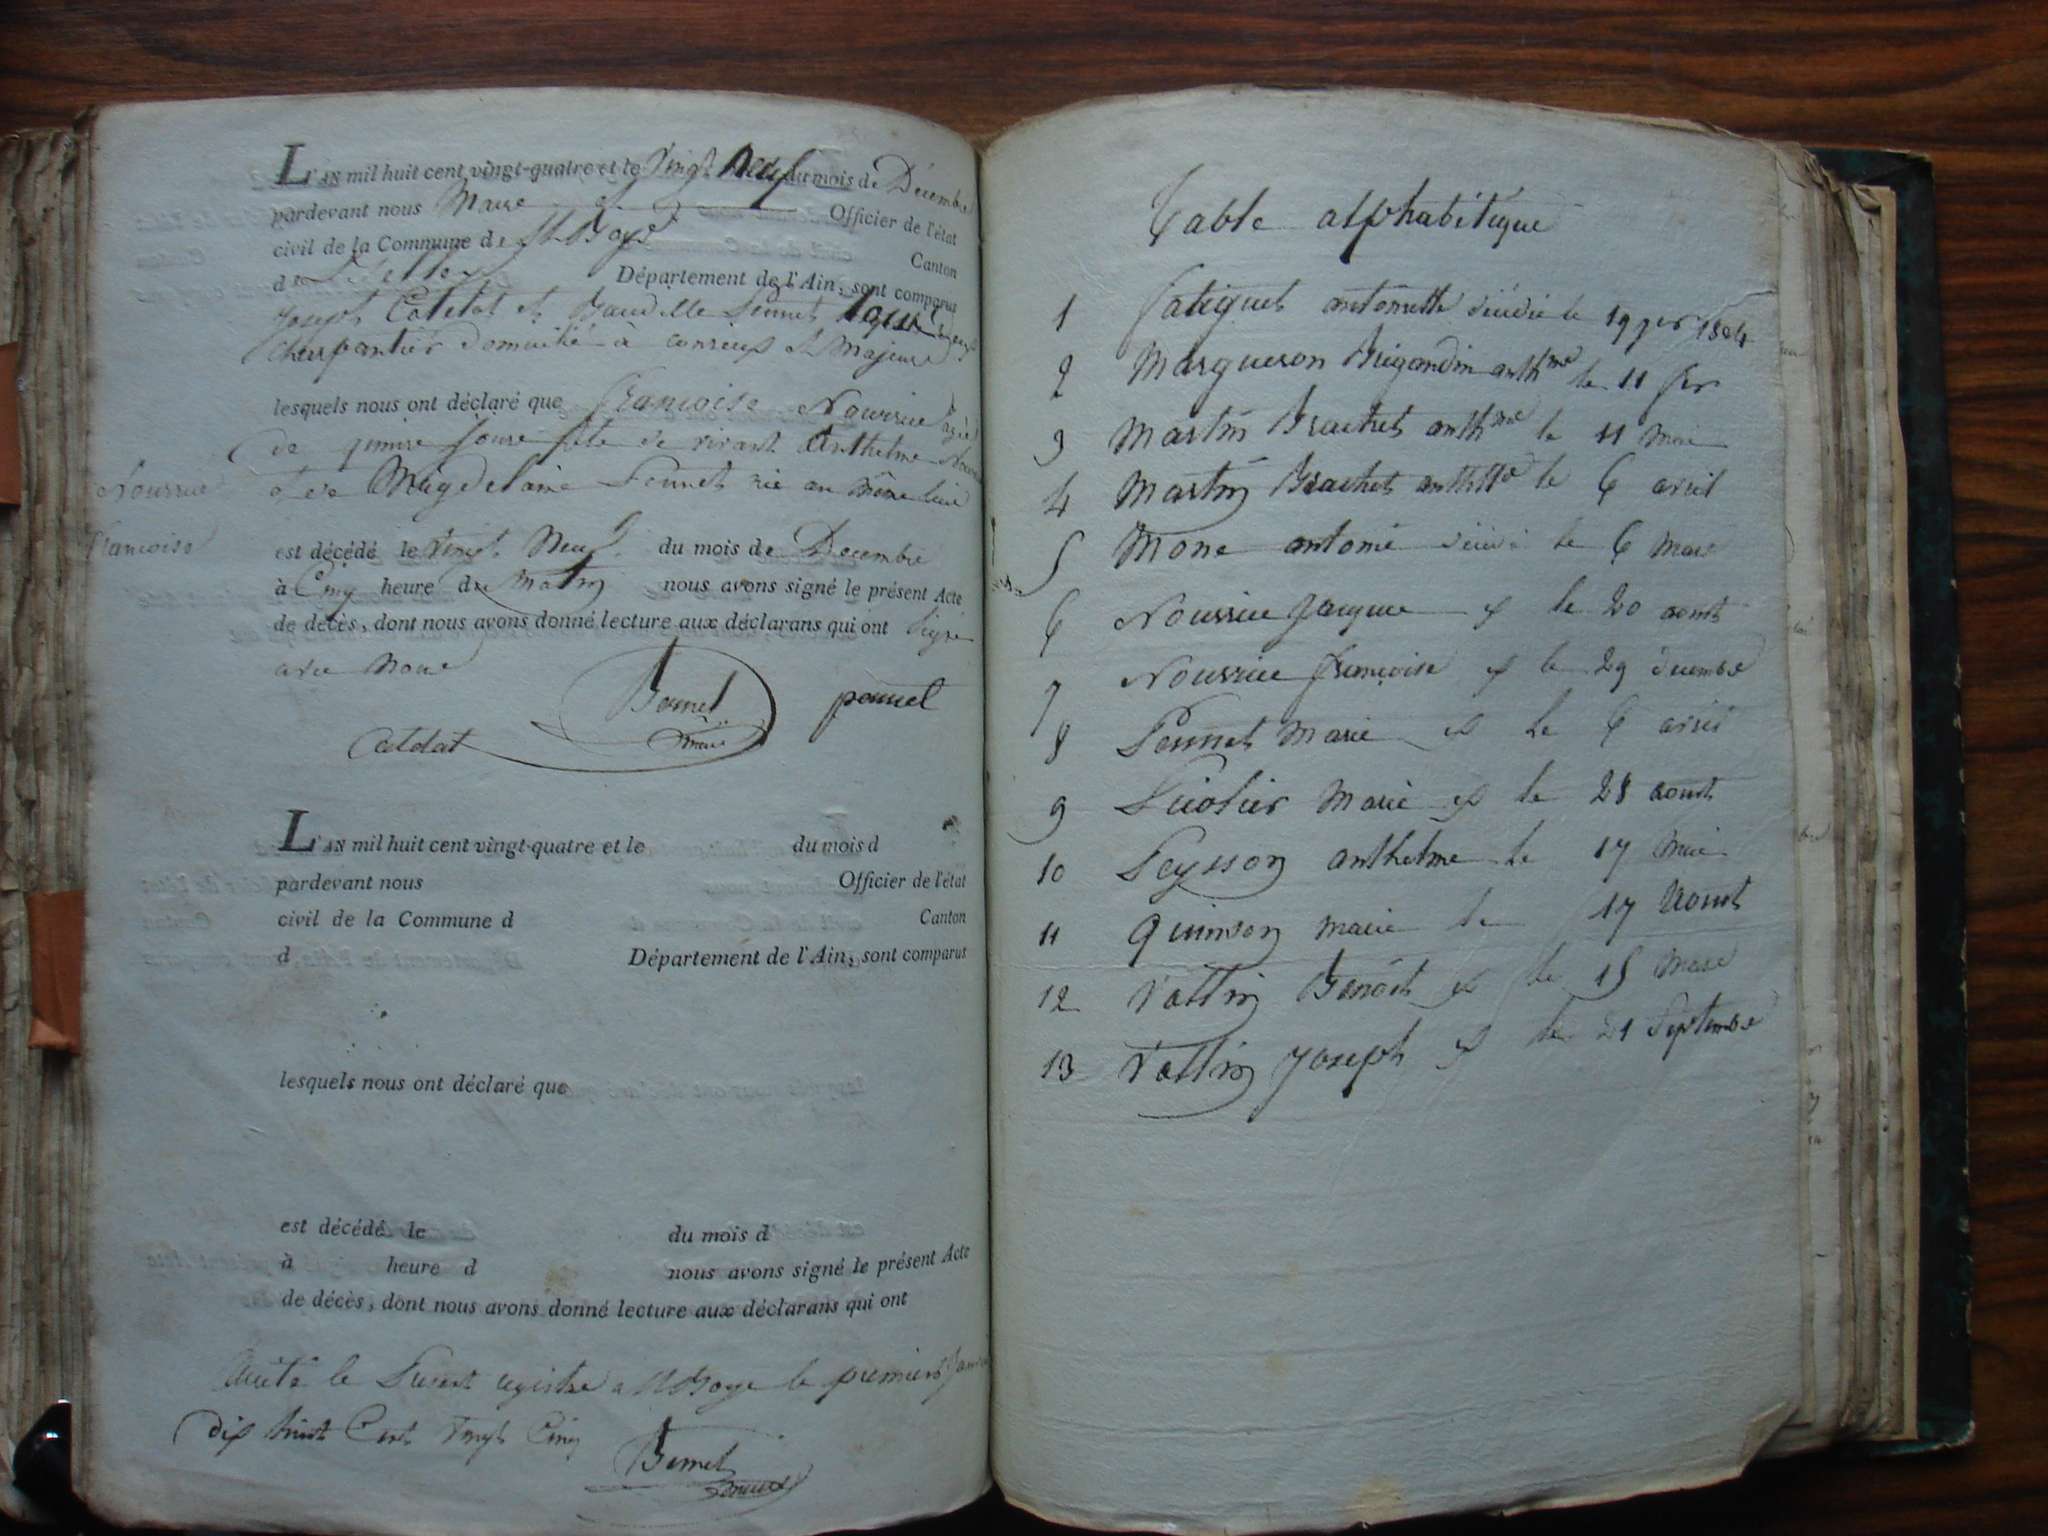 L'AN mil huit cent vingt-quatre et le vingt neuf du mois de Décembre
pardevant nous Maire Officier de l'état
civil de la Commune de St Boys
Canton
de Belley Département de l'Ain, sont comparus
Joseph et Pennet
charpentier domicilié à
lesquels nous ont déclaré que françoise Nourrice agée
de quinze jours fille de vivant Anthelme
et de Magdelaine Pennet née au même lieu
Nourrice
françoise
est décédé le vingt Neuf du mois de Decembre
à Cinq heure du matin nous avons signé le présent Acte
de décès, dont nous avons donné lecture aux déclarans qui ont signé
avec Nous
Bornet pennet
maire
L'AN mil huit cent vingt-quatre et le du mois d
pardevant nous Officier de l'état
civil de la Commune d Canton
d Département de l'Ain, sont comparus
lesquels nous ont déclaré que
est décédé le du mois d
à heure d nous avons signé le présent Acte
de décès, dont nous avons donné lecture aux déclarans qui ont
le registre a St Boys le premier Janvier
dix huit Cent vingt Cinq
Bornet
Table alphabétique
1 antoinette le 19
2 Margueron Brigandin anthme le 11
3 Martin Brachet anthme le 11 Mai
4 Martin Brachet le 6 avril
5 Mone antoine le 6 Mars
6 Nourrice Jacques le 20 aout
7 Nourrice françoise le 29 decembre
8 Pennet Marie le 6 avril
9 Marie le 28 aout
10 Peysson anthelme le 17 Mai
11 Quinson Marie le 17 Aout
12 Vallin Benoit le 15 Mars
13 Vallin Joseph le 21 Septembre